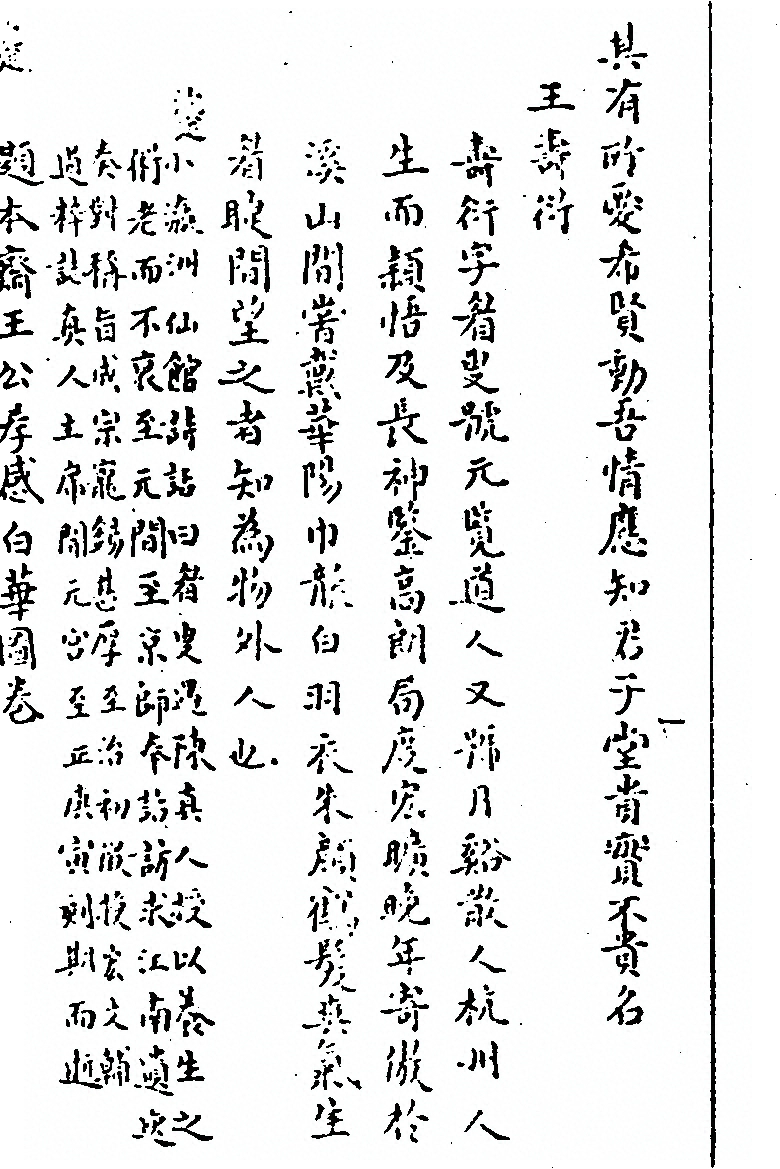 其有所愛希賢動吾情應知君子堂貴實不貴名
王壽衍
壽衍字眉叟號元覽道人又號月谿散人杭州人
生而穎悟及長神鑒高朗局度宏曠晚年寄傲於
溪山間嘗戴華陽巾披白羽衣朱顏鶴髮英氣生
眉睫間望之者知為物外人也
小瀛洲仙館詩話曰眉叟遇陳真人授以養生之
術老而不衰至元間至京師奉詔訪求江南遺逸
奏對稱旨成宗寵錫甚厚至治初嵗授宏文輔
道粹德真人主席開元宮至正庚寅刻期而逝
題本齋王公孝感白華圖卷